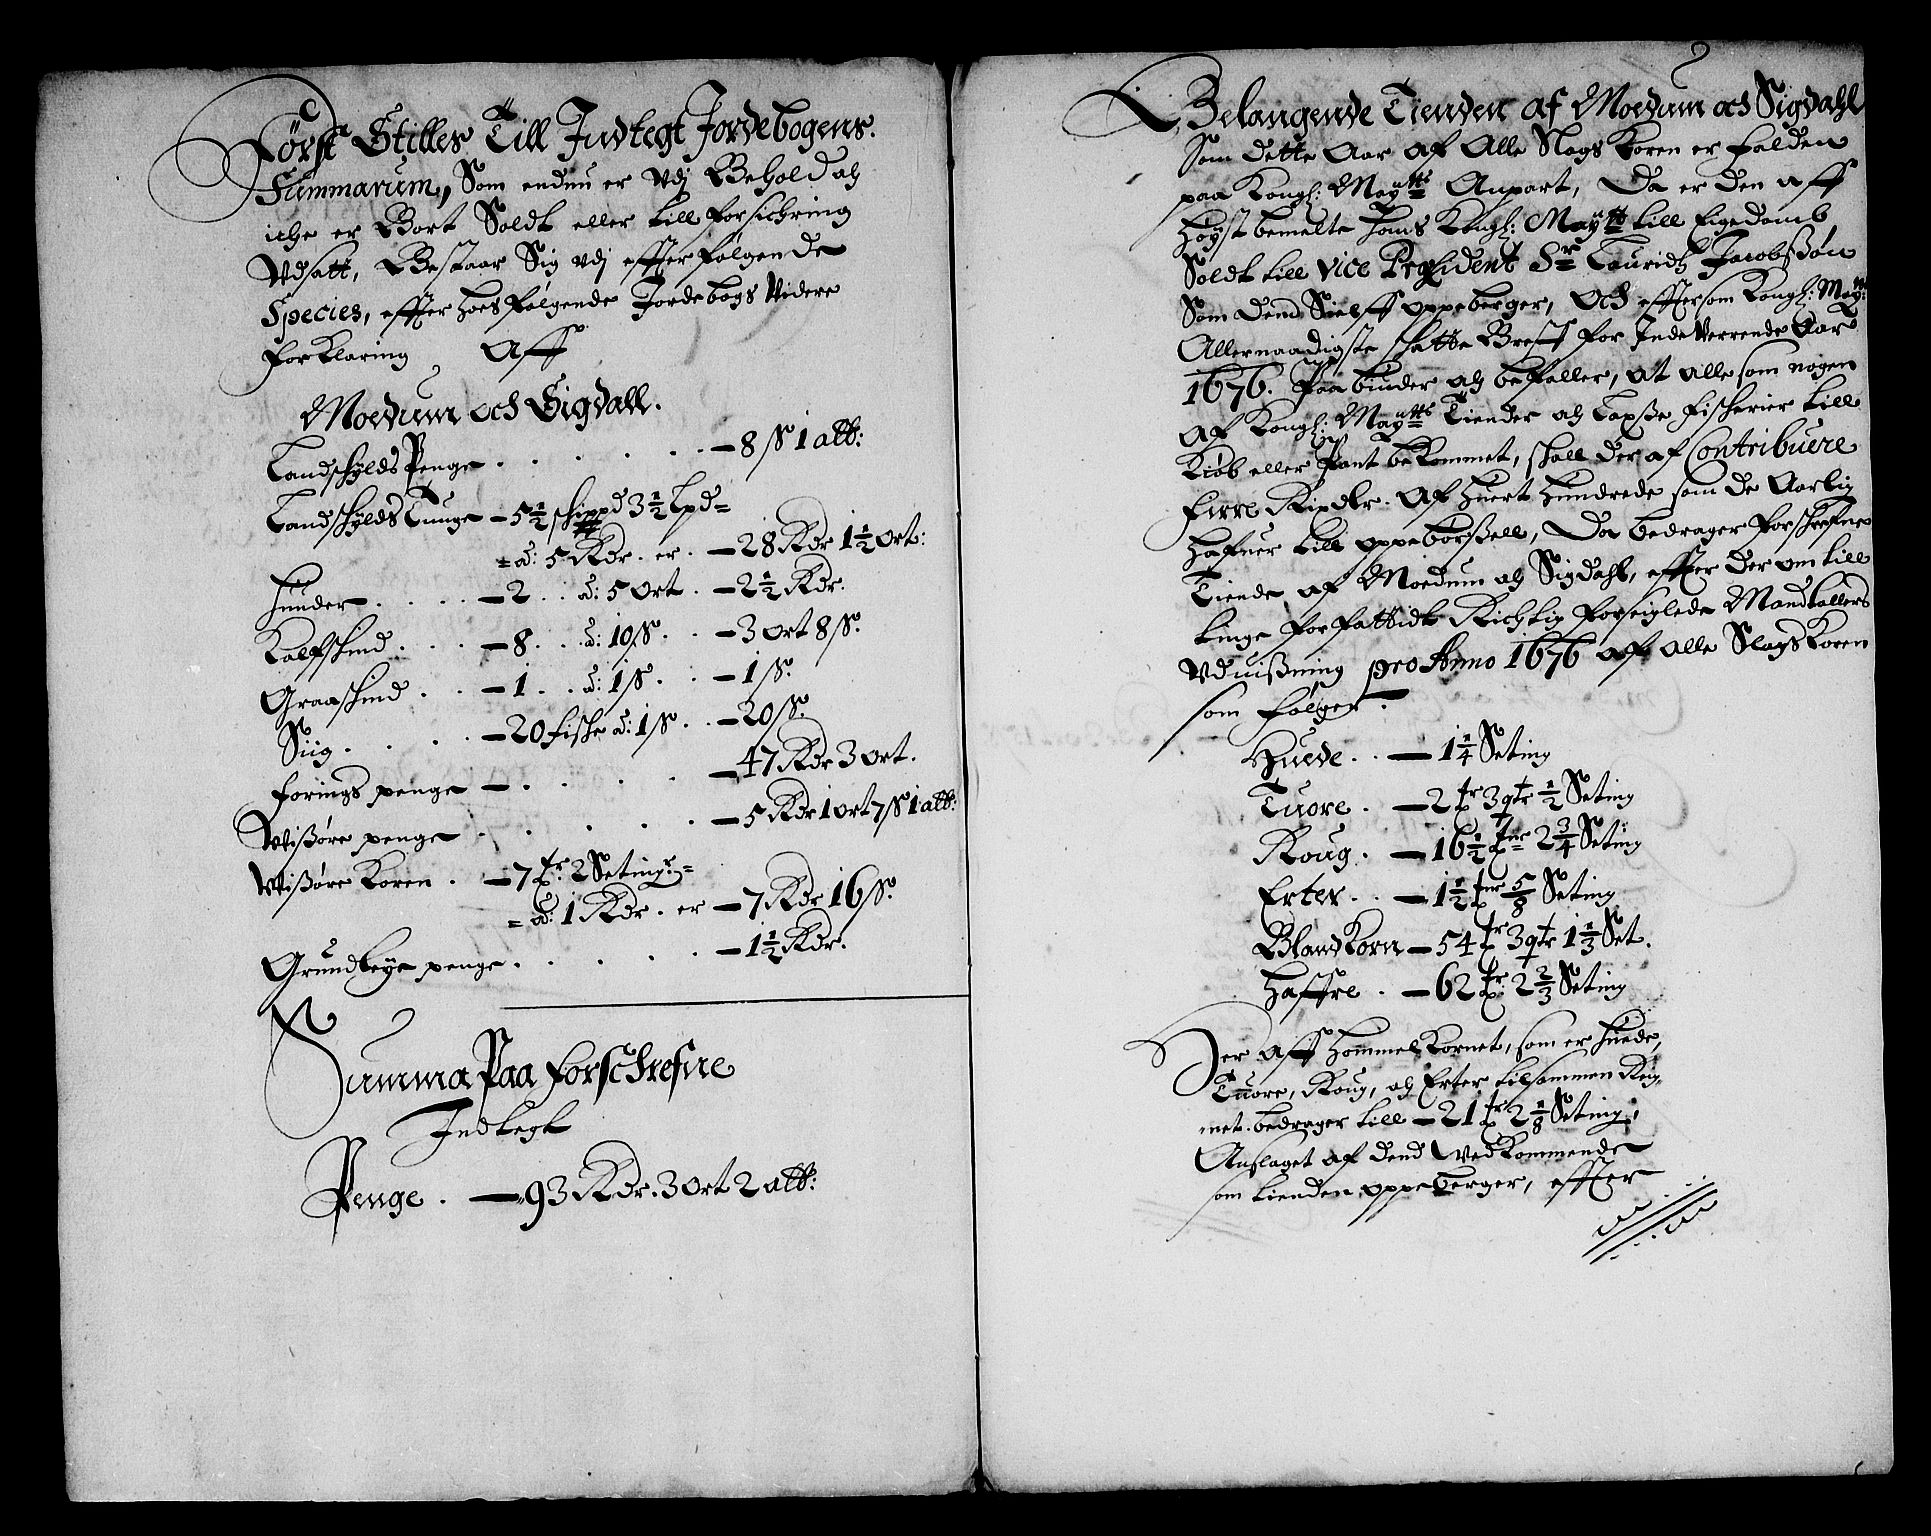 Först Stilles Till Indtegt Jordebogens.
Summarum, Som endnu er Vdj Behold och
iche er Bort Soldt eller till forsichring
Vdsatt, Bestaar Sig vdj effterfølgende
Species, effter hoesfølgende Jordebogs Videre
forKlaring Aff
Moedum och Sigdall.
Landschÿlds Penge . . . . . . . — 8 ß 1 alb:
Landschÿlds Tunge — 5 1/2 schippd 3 1/2 Lpd =
= ad: 5 Rdr. er . — 28 Rdr 1 1/2 ort:
Huuder . . . . — 2 . . ad: 5 ort . — 2 1/2 Rdr.
Kalfskind . . . — 8 . . ad: 10 ß . . — 3 ort 8 ß.
Graaskind . . — 1 . . ad: 1 ß . . — 1 ß.
Siig . . . . — 20 fiske ad: 1 ß . . — 20 ß.
Forings penge — . . . . — 47 Rdr 3 ort.
Wißøre penge . . . . . — 5 Rdr 1 ort 7 ß 1 alb:
Wißøre Koren . — 7 tr. 2 Setingr =
= ad: 1 Rdr. er — 7 Rdr 16 ß.
Grundleye penge . . . . . — 1 1/2 Rdr.
Summa Paa forschrefne
Indtegt
Penge . — 93 Rdr. 3 ort 2 alb:
Belangende Tienden af Moedum och Sigdahl
Som dette Aar af Alle Slags Koren er falden
paa Kongl: Maytts Anpart, Da er den aff
Høyst bemelte Hans Kongl: Maytt till Eigedomb
Soldt till Vice Præsident Sr Lauridtz Jacobßøn
Som dend Sielff oppeberger, Och efftersom Kongl: Maytts
Allernaadigste schatte Breff for Indeverrende Aar
1676. Paabiuder och befaller, at alle som nogen
af Kongl: Maytts Tiender och Laxße fischerier till
Kiøb eller Pant bekommet, schall der af Contribuere
Firre Rixdlr. af huert Hundrede som de Aarlig
Hafuer till oppebørßell, Da bedrager forschrefne
Tiende af Moedum och Sigdahl, effter der om till
tinge forfattidt Richtig forseiglede Mandtallers
Vduißning pro Anno 1676 af alle Slags Koren
som følger.
Huede . . — 1 1/4 Seting
Tuore . — 2 tr 3 qtr 1/2 Seting
Roug . — 16 1/2 tnr 2 3/4 Seting
Erter . . — 1 1/2 tnr 5/8 Seting
BlandKorn — 54 tr 3 qtr 1 1/3 Set.
Haffre . — 62 tr. 2 2/3 Seting
Der aff Hommel Kornet, som er Huede,
Tuore, Roug, och Erter tilsammen Reig-
net. bedrager till — 21 tr 2 1/8 Seting,
Anslaget af dend Vedkommende
som tienden oppeberger, effter